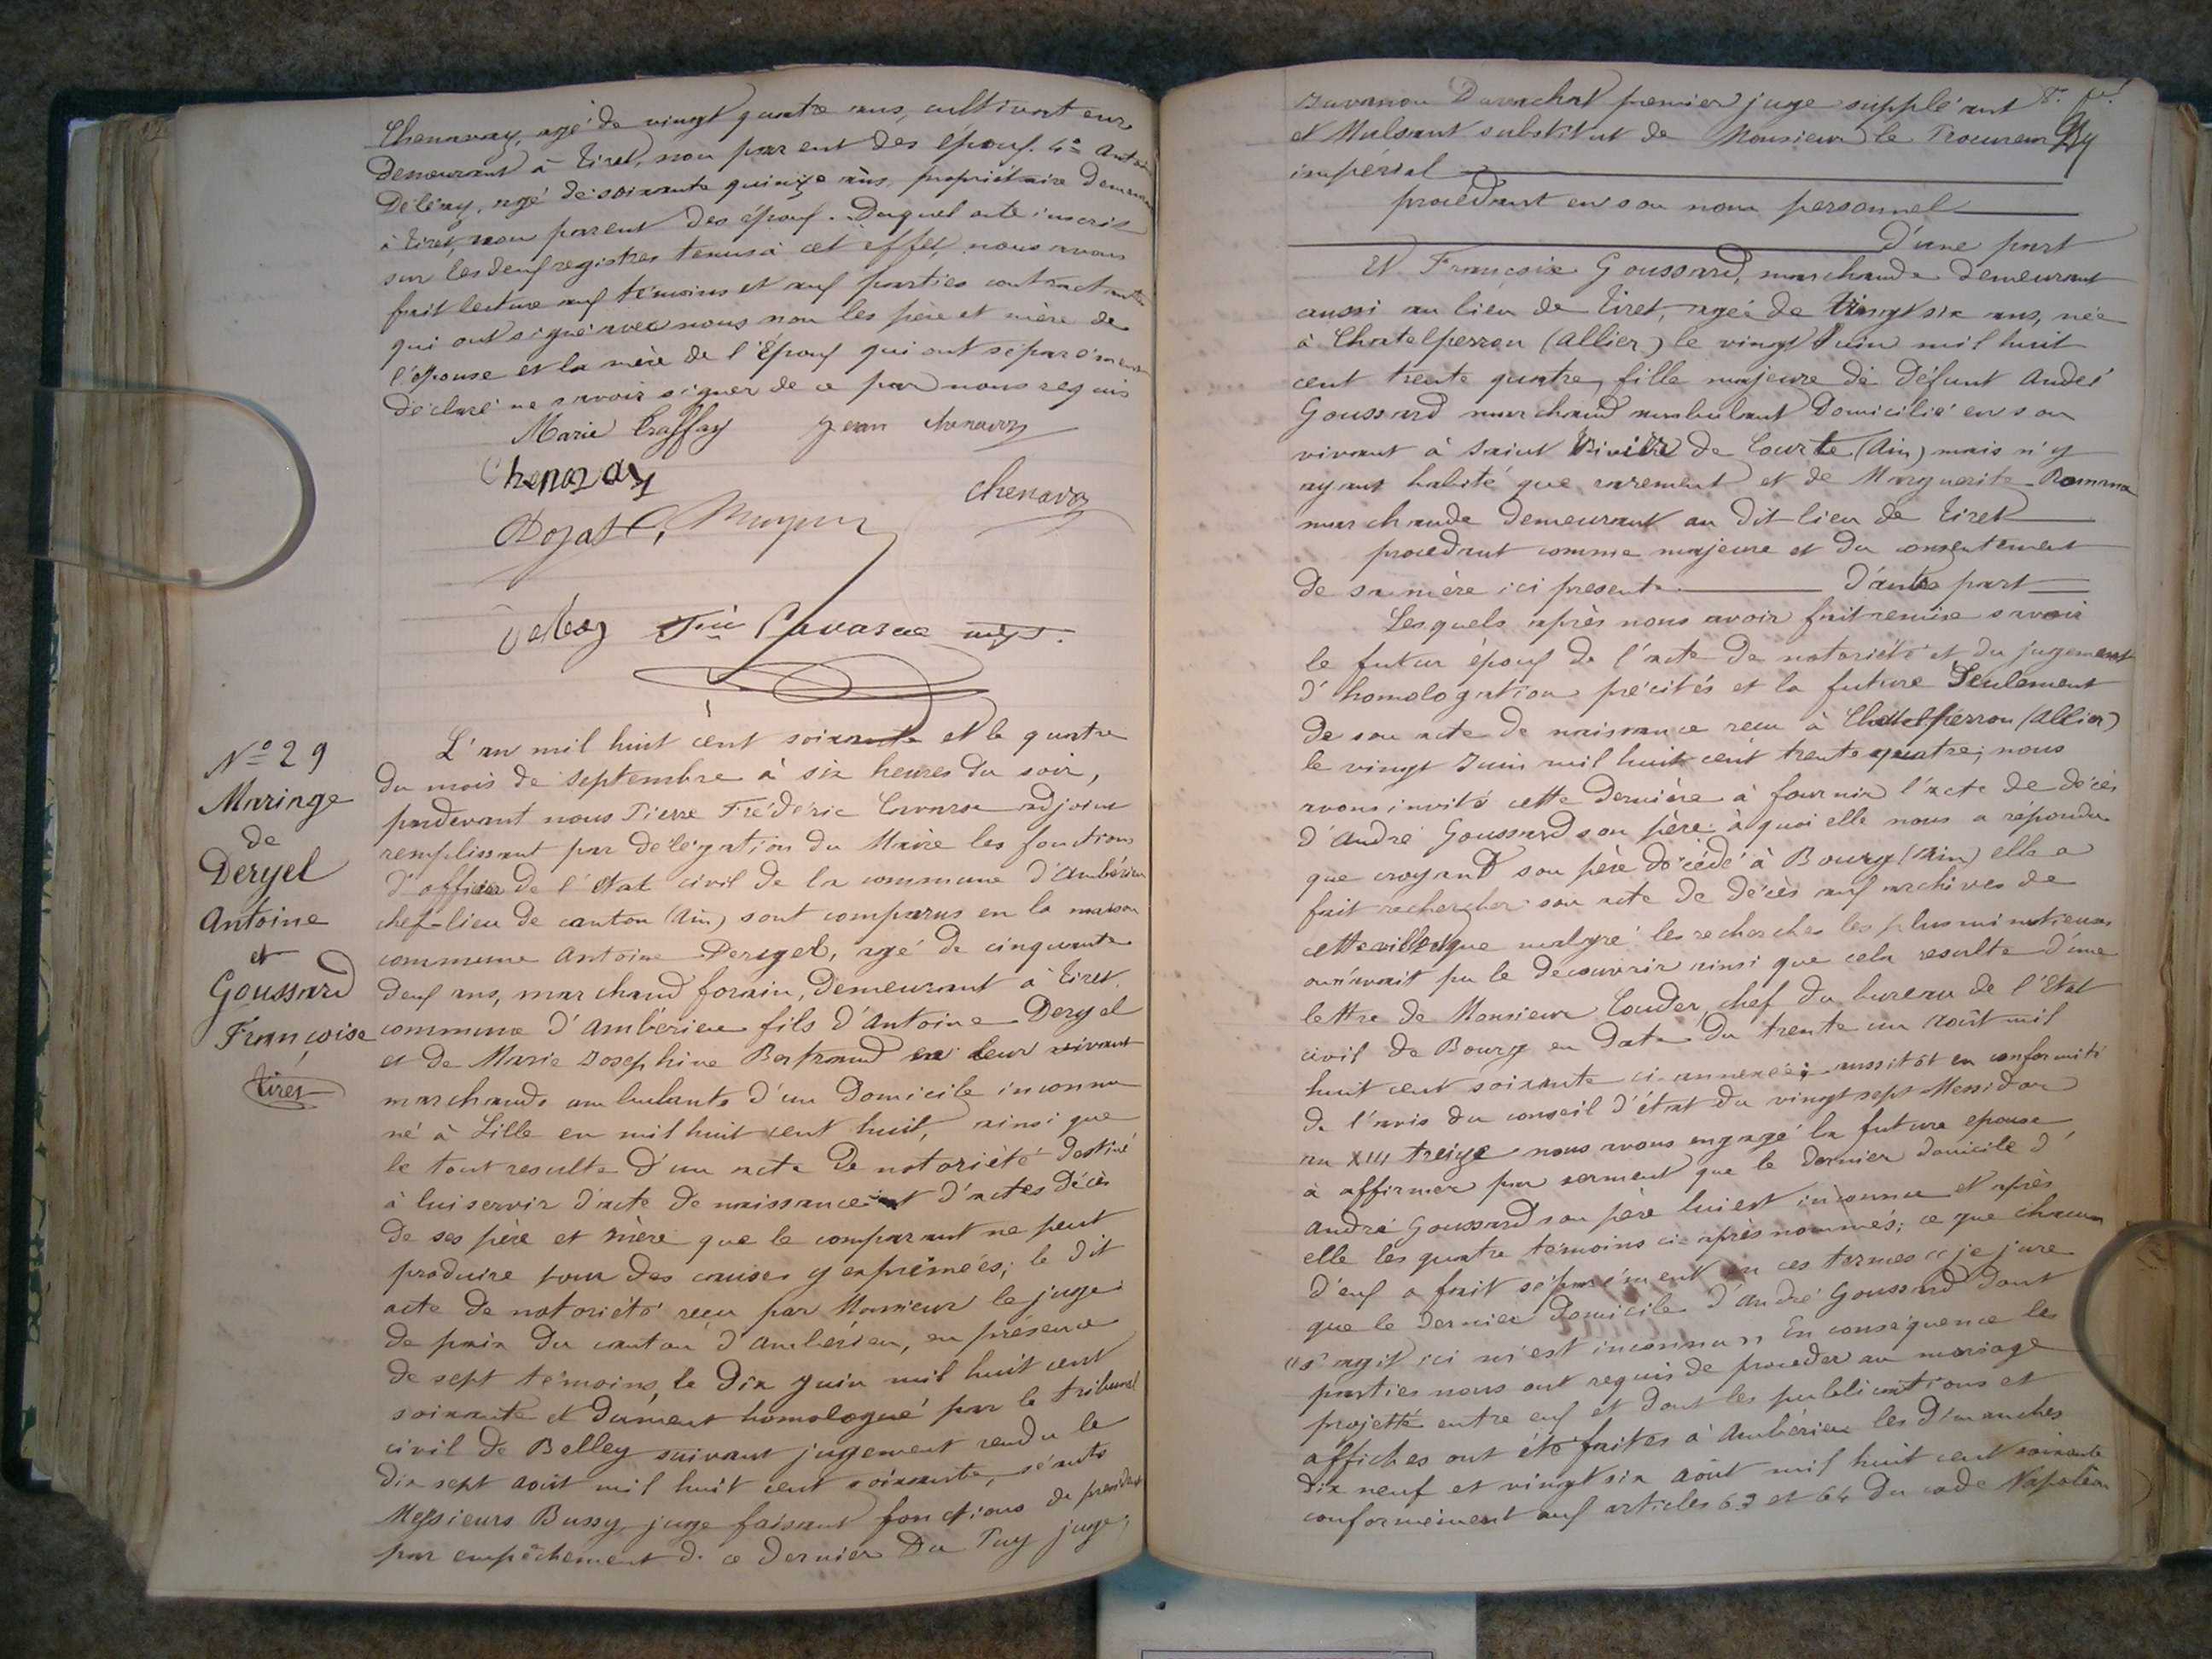 Chenavay, agé de vingt quatre ans, cultivateur
demeurant à Tiret, non parent des époux. 4° Antoine
Délény, agé de soixante quinze ans, propriétaire demeurant
à Tiret, non parent des époux. Duquel acte inscrit
sur les deux registres tenus à cet effet, nous avons
fait lecture aux témoins et aux parties contractantes
qui ont signé avec nous non les père et mère de
l'épouse et la mère de l'Epoux qui ont séparément
déclaré ne savoir signer de ce par nous requis
Marie Traffay Jean chenavay
Chenavay
chenavay
Dojat
Fic Cavarae adjt.
N° 29
Mariage
de
Deryel
Antoine
et
Goussard
Françoise
Tiret
L'an mil huit cent soixante et le quatre
du mois de Septembre à six heures du soir,
pardevant nous Pierre Frédéric Cavarae adjoint
remplissant par délégation du Maire les fonctions
d'officier de l'état civil de la commune d'Ambérieu
chef-lieu de canton (Ain) sont comparus en la maison
commune Antoine Deryel, agé de cinquante
deux ans, marchand forain, demeurant à Tiret,
commune d'Ambérieu fils d'Antoine Deryel
et de Marie Josephine Bertrand en leur vivant
marchands ambulants d'un domicile inconnu
né à Lille en mil huit cent huit, ainsi que
le tout resulte d'un acte de notoriété destiné
à lui servir d'acte de naissance et d'actes décès
de ses père et mère que le comparant ne peut
produire pour des causes y exprimées; le dit
acte de notoriété reçu par Monsieur le juge
de paix du canton d'Ambérieu, en présence
de sept témoins, le dix juin mil huit cent
soixante et dument homologué par le tribunal
civil de Belley suivant jugement rendu le
dix sept août mil huit cent soixante, séants
Messieurs Bussy juge faisant fonctions de president
par empêchement de ce dernier Du Puy juge,
Juvanon Duvachat premier juge suppléant
et Mulsant substitut de Monsieur le Procureur
impérial
procédant en son nom personnel
d'une part
Et Françoise Goussard, marchande demeurant
aussi au lieu de Tiret, agée de vingt six ans, née
à Chatelperron (Allier) le vingt Juin mil huit
cent trente quatre, fille majeure de défunt André
Goussard marchand ambulant domicilié en son
vivant à Saint Trivier de Courte (Ain) mais n'y
ayant habité que rarement et de Marguerite Romana
marchande demeurant au dit lieu de Tiret
procédant comme majeure et du consentement
de sa mère ici presente d'autre part
Lesquels après nous avoir fait remise savoir
le futur époux de l'acte de notoriété et du jugement
d'homologation précités et la future Seulement
de son acte de naissance reçu à Chatelperron (Allier)
le vingt Juin mil huit cent trente quatre, nous
avons invité cette dernière à fournir l'acte de décès
d'André Goussard son père: à quoi elle nous a répondu
que croyant son père décédé à Bourg (Ain) elle a
fait rechercher son acte de décès aux archives de
cette ville, que malgré les recherches les plus minutieuses
on n'avait pu le decouvrir ainsi que cela resulte d'une
lettre de Monsieur Couder, chef du bureau de l'Etat
civil de Bourg en date du trente un août mil
huit cent soixante ci-annexée; aussitôt en conformité
de l'avis du conseil d'état du vingt sept Messidor
an XIII treize nous avons engagé la future epouse
à affirmer par serment que le dernier domicile d'
André Goussard son père lui est inconnu et après
elle les quatre témoins ci-après nommés; ce que chacun
d'eux a fait séparément en ces termes "je jure
que le dernier domicile d'André Goussard dont
"s'agit ici m'est inconnu" En conséquence les
parties nous ont requis de procéder au mariage
projetté entre eux et dont les publications et
affiches ont été faites à Ambérieu les dimanches
dix neuf et vingt six août mil huit cent soixante
conformement aux articles 63 et 64 du code Napoléon